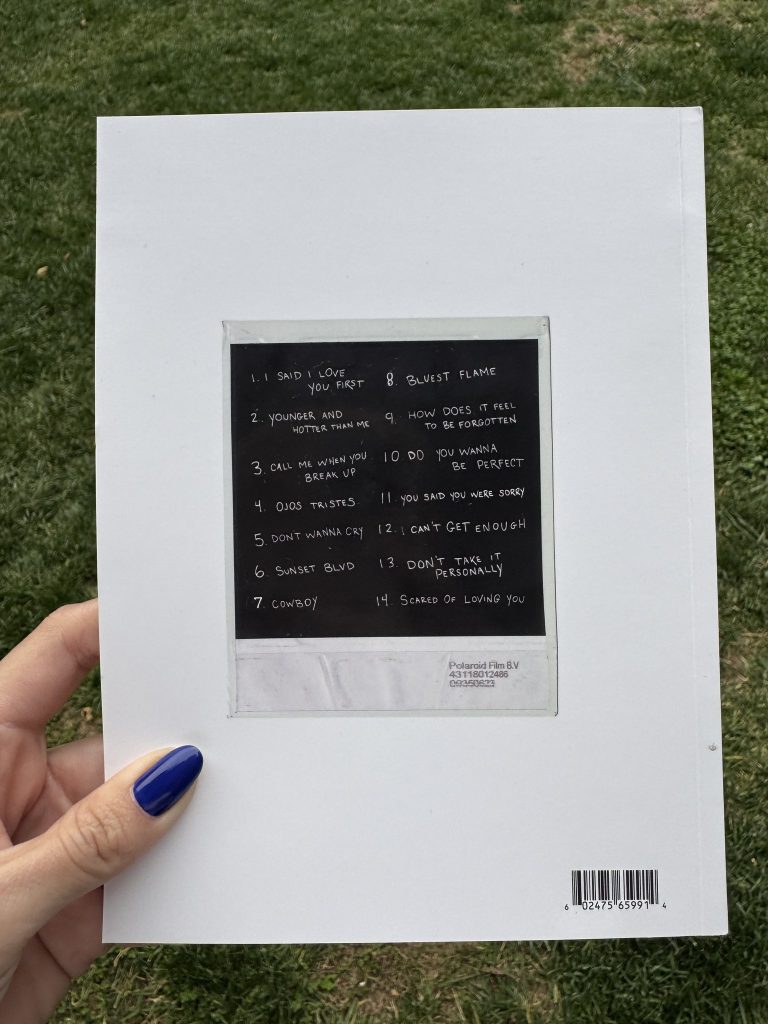 1. I SAID I LOVE
YOU FIRST
2. YOUNGER AND
HOTTER THAN ME
3. CALL ME WHEN YOU
BREAK UP
4. OJOS TRISTES
5. DONT WANNA CRY
6. SUNSET BLVD
7. COWBOY
8. BLUEST FLAME
9. HOW DOES IT FEEL
TO BE FORGOTTEN
10 DO YOU WANNA
BE PERFECT
11. YOU SAID YOU WERE SORRY
12. I CAN'T GET ENOUGH
13. DON'T TAKE IT
PERSONALLY
14. SCARED OF LOVING YOU
Polaroid Film B.V
43118012486
6 02475 65991 4